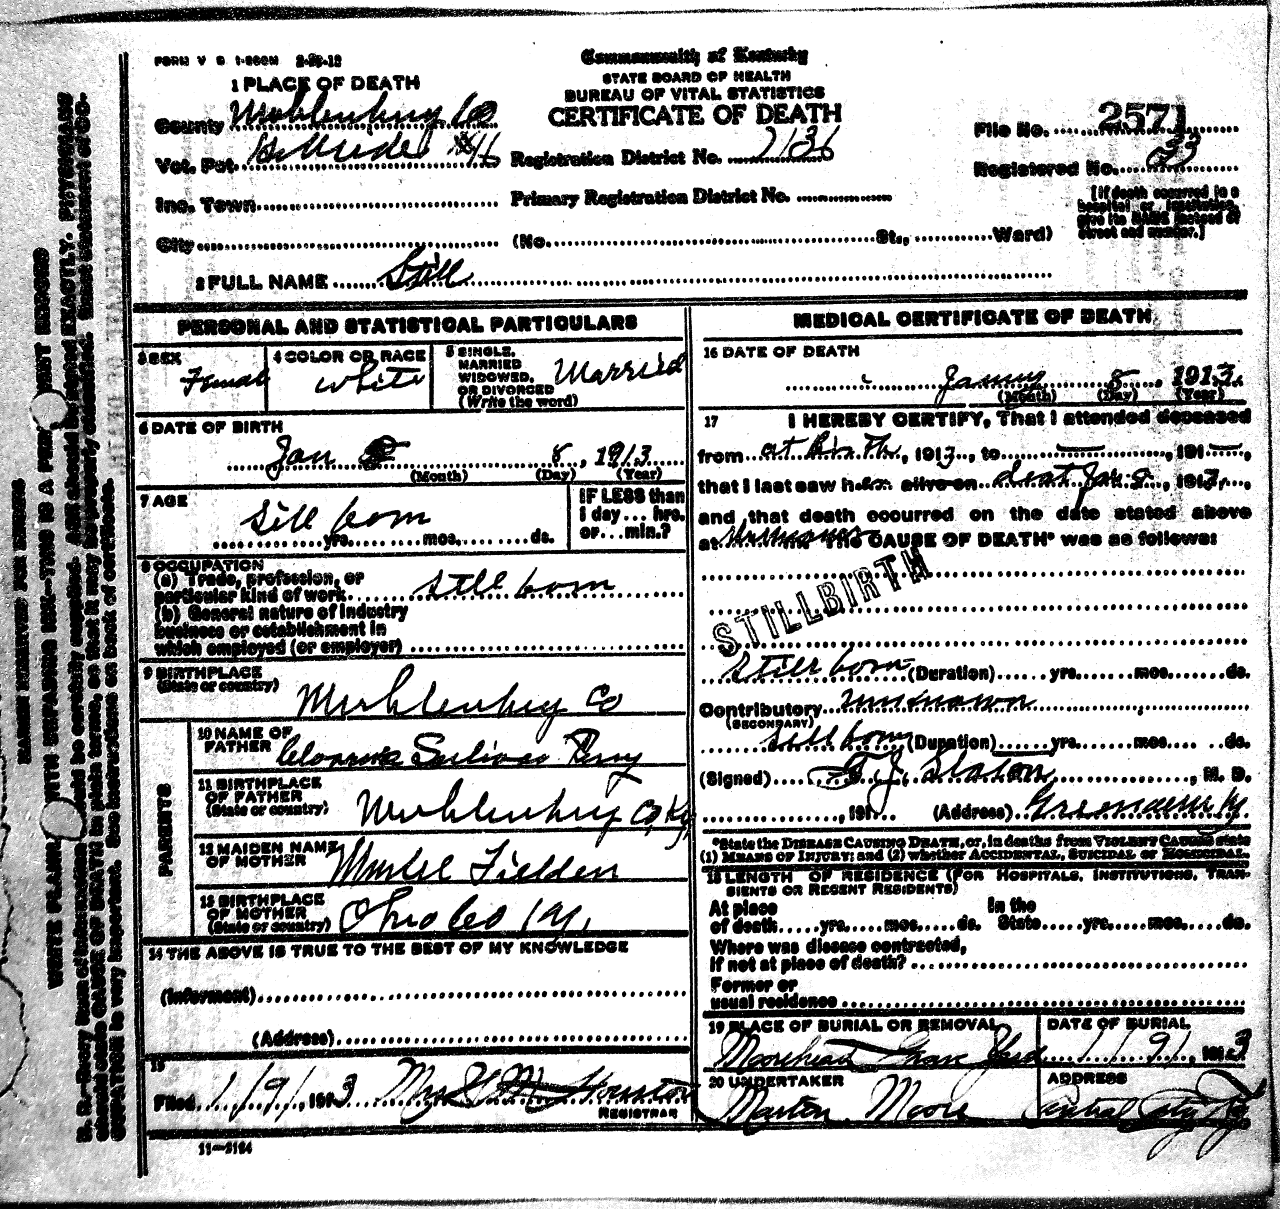 FORM V S 1-860M 2-26-12
Commonwealth of Kentucky
STATE BOARD OF HEALTH
BUREAU OF VITAL STATISTICS
CERTIFICATE OF DEATH
1 PLACE OF DEATH
County Muhlenburg Co
Vot. Pct. #16
Registration District No. 7136
File No. 2571
Registered No. 23
Inc. Town
Primary Registration District No.
City (No. St., Ward)
[If death occurred in a hospital or institution, give its NAME instead of street and number.]
2 FULL NAME Still
PERSONAL AND STATISTICAL PARTICULARS
3 SEX Female
4 COLOR OR RACE White
5 SINGLE, MARRIED WIDOWED, OR DIVORCED (Write the word) Married
6 DATE OF BIRTH
Jan 8, 1913
(Month) (Day) (Year)
7 AGE
Still born
yrs. mos. ds.
IF LESS than 1 day... hrs. or...min.?
8 OCCUPATION
(a) Trade, profession, or particular kind of work Still born
(b) General nature of industry business or establishment in which employed (or employer)
9 BIRTHPLACE (State or country) Muhlenburg Co
PARENTS
10 NAME OF FATHER Perry
11 BIRTHPLACE OF FATHER (State or country) Muhlenburg Co, Ky,
12 MAIDEN NAME OF MOTHER Fielden
13 BIRTHPLACE OF MOTHER (State or country) Ohio Co Ky,
14 THE ABOVE IS TRUE TO THE BEST OF MY KNOWLEDGE
(Informant)
(Address)
15
Filed 1/9/, 1913 Mrs
REGISTRAR
11-2184
MEDICAL CERTIFICATE OF DEATH
16 DATE OF DEATH
8, 1913.
(Month) (Day) (Year)
17 I HEREBY CERTIFY, That I attended deceased
from at Birth, 1913, to , 191
that I last saw her alive on Jan 8, 1913,
and that death occurred on the date stated above
at The CAUSE OF DEATH* was as follows:
STILLBIRTH
Still born (Duration) yrs. mos. ds.
Contributory unknown
(SECONDARY)
Still born (Duration) yrs. mos. ds.
(Signed) T. J. Slaton, M. D.
, 191 (Address) Ky
*State the DISEASE CAUSING DEATH, or, in deaths from VIOLENT CAUSES state
(1) MEANS OF INJURY; and (2) whether ACCIDENTAL, SUICIDAL or HOMICIDAL.
18 LENGTH OF RESIDENCE (FOR HOSPITALS, INSTITUTIONS, TRANSIENTS OR RECENT RESIDENTS)
At place of death yrs. mos. ds. In the State yrs. mos. ds.
Where was disease contracted,
If not at place of death?
Former or usual residence
19 PLACE OF BURIAL OR REMOVAL Moorehead Grave Yard
DATE OF BURIAL 1/9/, 1913
20 UNDERTAKER Marton Moore
ADDRESS Central City Ky
MARGIN RESERVED FOR BINDING
WRITE PLAINLY, WITH UNFADING INK—THIS IS A PERMANENT RECORD
N. B.—Every item of information should be carefully supplied. AGE should be stated EXACTLY. PHYSICIANS
should state CAUSE OF DEATH in plain terms, so that it may be properly classified. Exact statement of OC-
CUPATION is very important. See instructions on back of certificate.